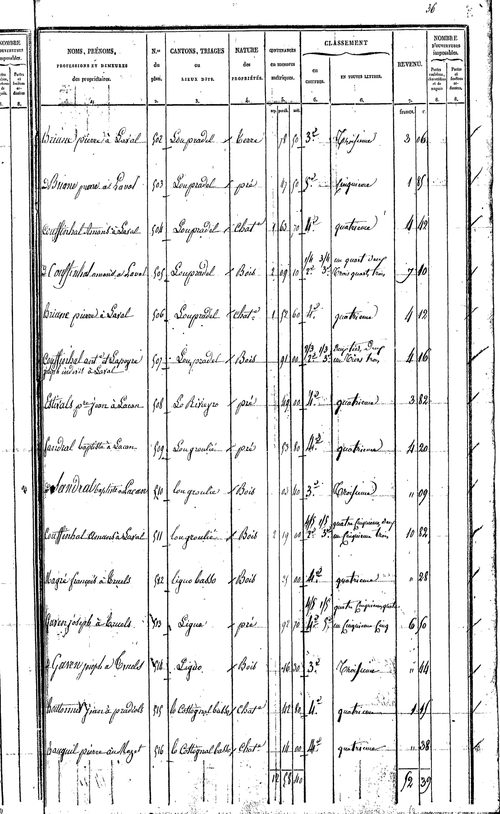 36
NOMS, PRÉNOMS, PROFESSIONS ET DEMEURES des propriétaires.
N.os du plan.
CANTONS, TRIAGES ou LIEUX DITS.
NATURE des PROPRIÉTÉS.
CONTENANCES en mesures métriques.
CLASSEMENT
en CHIFFRES.
EN TOUTES LETTRES.
REVENU.
NOMBRE D'OUVERTURES imposables.
1. 2. 3. 4. 5. 6. 6. 7. 8. 8.
francs. c.
Briane pierre à Laval 502 Loupradel Terre 78 50 3.e Troisieme 3 06
d. Briane pierre à Laval 503 Loupradel pré 5.e Cinquieme 1 85
Couffinhal Amans à Laval 504 Loupradel Chat.e 1 63 70 4.e quatrieme 4 42
d. Couffinhal amans à Laval 505 Loupradel Bois 2 09 10 1/4 3/4 2.e 3.e un quart deux trois quart, trois 7 10
Briane pierre à Laval 506 Loupradel Chat.e 1 52 60 4.e quatrieme 4 12
Couffinhal ant. et Lapeyre à Laval 507 Loupradel Bois 91 00 2/3 1/3 2.e 3.e deux tiers, deux un tiers trois 4 16
Estivals p.re jean à Lacan 508 pré 49 00 4.e quatrieme 3 82
Landral baptiste à Lacan 509 Longroulié pré 53 80 4.e quatrieme 4 20
d. Landral baptiste à Lacan 510 longroulie Bois 3.e Troisieme " 09
Couffinhal Amans à Laval 511 longroulié Bois 2 19 00 4/5 1/5 2.e 3.e quatre Cinquiemes deux un Cinquieme trois 10 82
françois à Cruels 512 ligue basso Bois 35 00 4.e quatrieme " 28
Gaven joseph à Cruels 513 Ligue pré 92 70 4/5 1/5 4.e 5.e quatre Cinquiemes quatre un Cinquieme Cinq 6 50
d. Gaven joseph à Cruels 514 Liguo Bois 16 30 3.e Troisieme " 44
jean à pradials 515 le Cottognal basse Chat.e 42 80 4.e quatrieme 1 15
pierre au Mazet 516 le Cottognal basse Chat.e 14 00 4.e quatrieme " 38
12 58 40 52 39